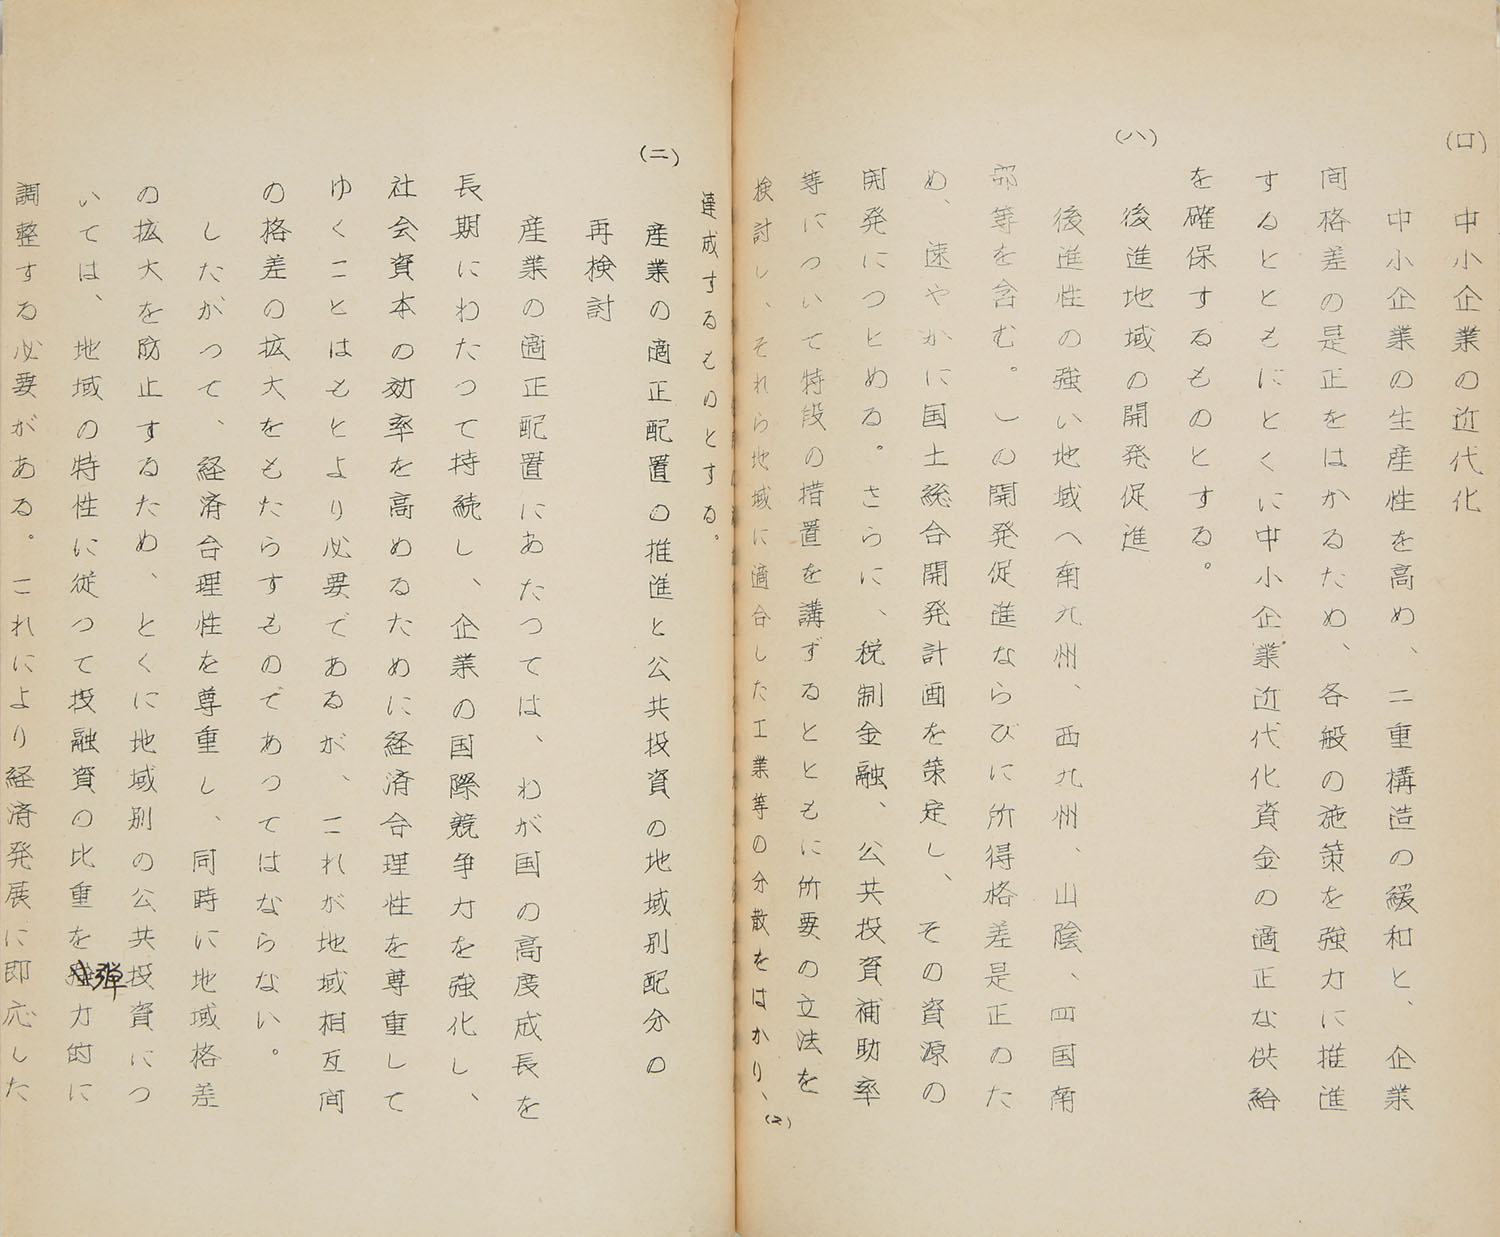 (ロ) 中小企業の近代化
中小企業の生産性を高め、二重構造の緩和と、企業
間格差の是正をはかるため、各般の施策を強力に推進
するとともにとくに中小企業近代化資金の適正な供給
を確保するものとする。
(ハ) 後進地域の開発促進
後進性の強い地域(南九州、西九州、山陰、四国南
部等を含む。)の開発促進ならびに所得格差是正のた
め、速やかに国土総合開発計画を策定し、その資源の
開発につとめる。さらに、税制金融、公共投資補助率
等について特段の措置を講ずるとともに所要の立法を
検討し、それら地域に適合した工業等の分散をはかり、
(2)
達成するものとする。
(ニ) 産業の適正配置の推進と公共投資の地域別配分の
再検討
産業の適正配置にあたつては、わが国の高度成長を
長期にわたつて持続し、企業の国際競争力を強化し、
社会資本の効率を高めるために経済合理性を尊重して
ゆくことはもとより必要であるが、これが地域相互間
の格差の拡大をもたらすものであつてはならない。
したがつて、経済合理性を尊重し、同時に地域格差
の拡大を防止するため、とくに地域別の公共投資につ
いては、地域の特性に従つて投融資の比重を弾力的に
調整する必要がある。これにより経済発展に即応した